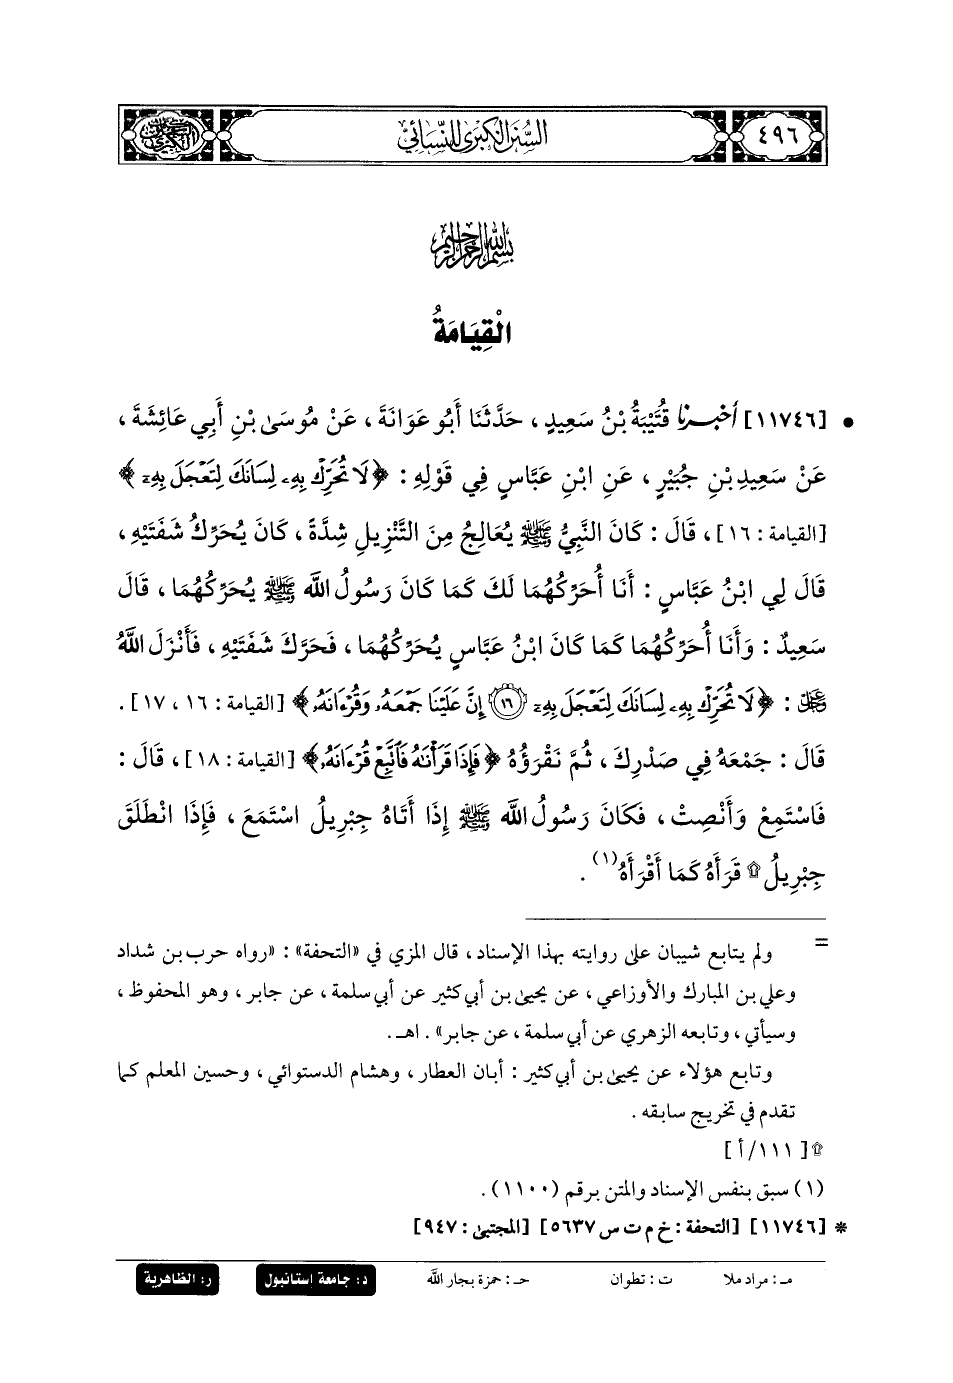 السنن الكبرى للنسائي
٤٩٦
بسم الله الرحمن الرحيم
الْقِيَامَةُ
• [١١٧٤٦] أخبرنا قُتَيْبَةُ بْنُ سَعِيدٍ ، حَدَّثَنَا أَبُو عَوَانَةَ ، عَنْ مُوسَىٰ بْنِ أَبِي عَائِشَةَ ،
عَنْ سَعِيدِ بْنِ جُبَيْرٍ ، عَنِ ابْنِ عَبَّاسٍ فِي قَوْلِهِ : ﴿لَا تُحَرِّكْ بِهِۦ لِسَانَكَ لِتَعْجَلَ بِهِۦٓ﴾
[القيامة : ١٦] ، قَالَ : كَانَ النَّبِيُّ ﷺ يُعَالِجُ مِنَ التَّنْزِيلِ شِدَّةً ، كَانَ يُحَرِّكُ شَفَتَيْهِ ،
قَالَ لِي ابْنُ عَبَّاسٍ : أَنَا أُحَرِّكُهُمَا لَكَ كَمَا كَانَ رَسُولُ اللَّه ﷺ يُحَرِّكُهُمَا ، قَالَ
سَعِيدٌ : وَأَنَا أُحَرِّكُهُمَا كَمَا كَانَ ابْنُ عَبَّاسٍ يُحَرِّكُهُمَا ، فَحَرَّكَ شَفَتَيْهِ ، فَأَنْزَلَ اللَّهُ
: ﴿لَا تُحَرِّكْ بِهِۦ لِسَانَكَ لِتَعْجَلَ بِهِۦٓ ١٦ إِنَّ عَلَيْنَا جَمْعَهُۥ وَقُرْءَانَهُۥ﴾ [القيامة : ١٦ ، ١٧] .
قَالَ : جَمْعَهُ فِي صَدْرِكَ ، ثُمَّ نَقْرَؤُهُ ﴿فَإِذَا قَرَأْنَٰهُ فَٱتَّبِعْ قُرْءَانَهُۥ﴾ [القيامة : ١٨] ، قَالَ :
فَاسْتَمِعْ وَأَنْصِتْ ، فَكَانَ رَسُولُ اللَّه ﷺ إِذَا أَتَاهُ جِبْرِيلُ اسْتَمَعَ ، فَإِذَا انْطَلَقَ
جِبْرِيلُ ۩ قَرَأَهُ كَمَا أَقْرَأَهُ (١) .
= ولم يتابع شيبان على روايته بهذا الإسناد ، قال المزي في «التحفة» : «رواه حرب بن شداد
وعلي بن المبارك والأوزاعي ، عن يحيى بن أبي كثير عن أبي سلمة ، عن جابر ، وهو المحفوظ ،
وسيأتي ، وتابعه الزهري عن أبي سلمة ، عن جابر» . اهـ .
وتابع هؤلاء عن يحيى بن أبي كثير : أبان العطار ، وهشام الدستوائي ، وحسين المعلم كما
تقدم في تخريج سابقه .
۩ [١١١/ أ]
(١) سبق بنفس الإسناد والمتن برقم (١١٠٠) .
* [١١٧٤٦] [التحفة : خ م ت س ٥٦٣٧] [المجتبى : ٩٤٧]
مـ : مراد ملا ت : تطوان حـ : حمزة بجار اللَّه د : جامعة استانبول ر : الظاهرية